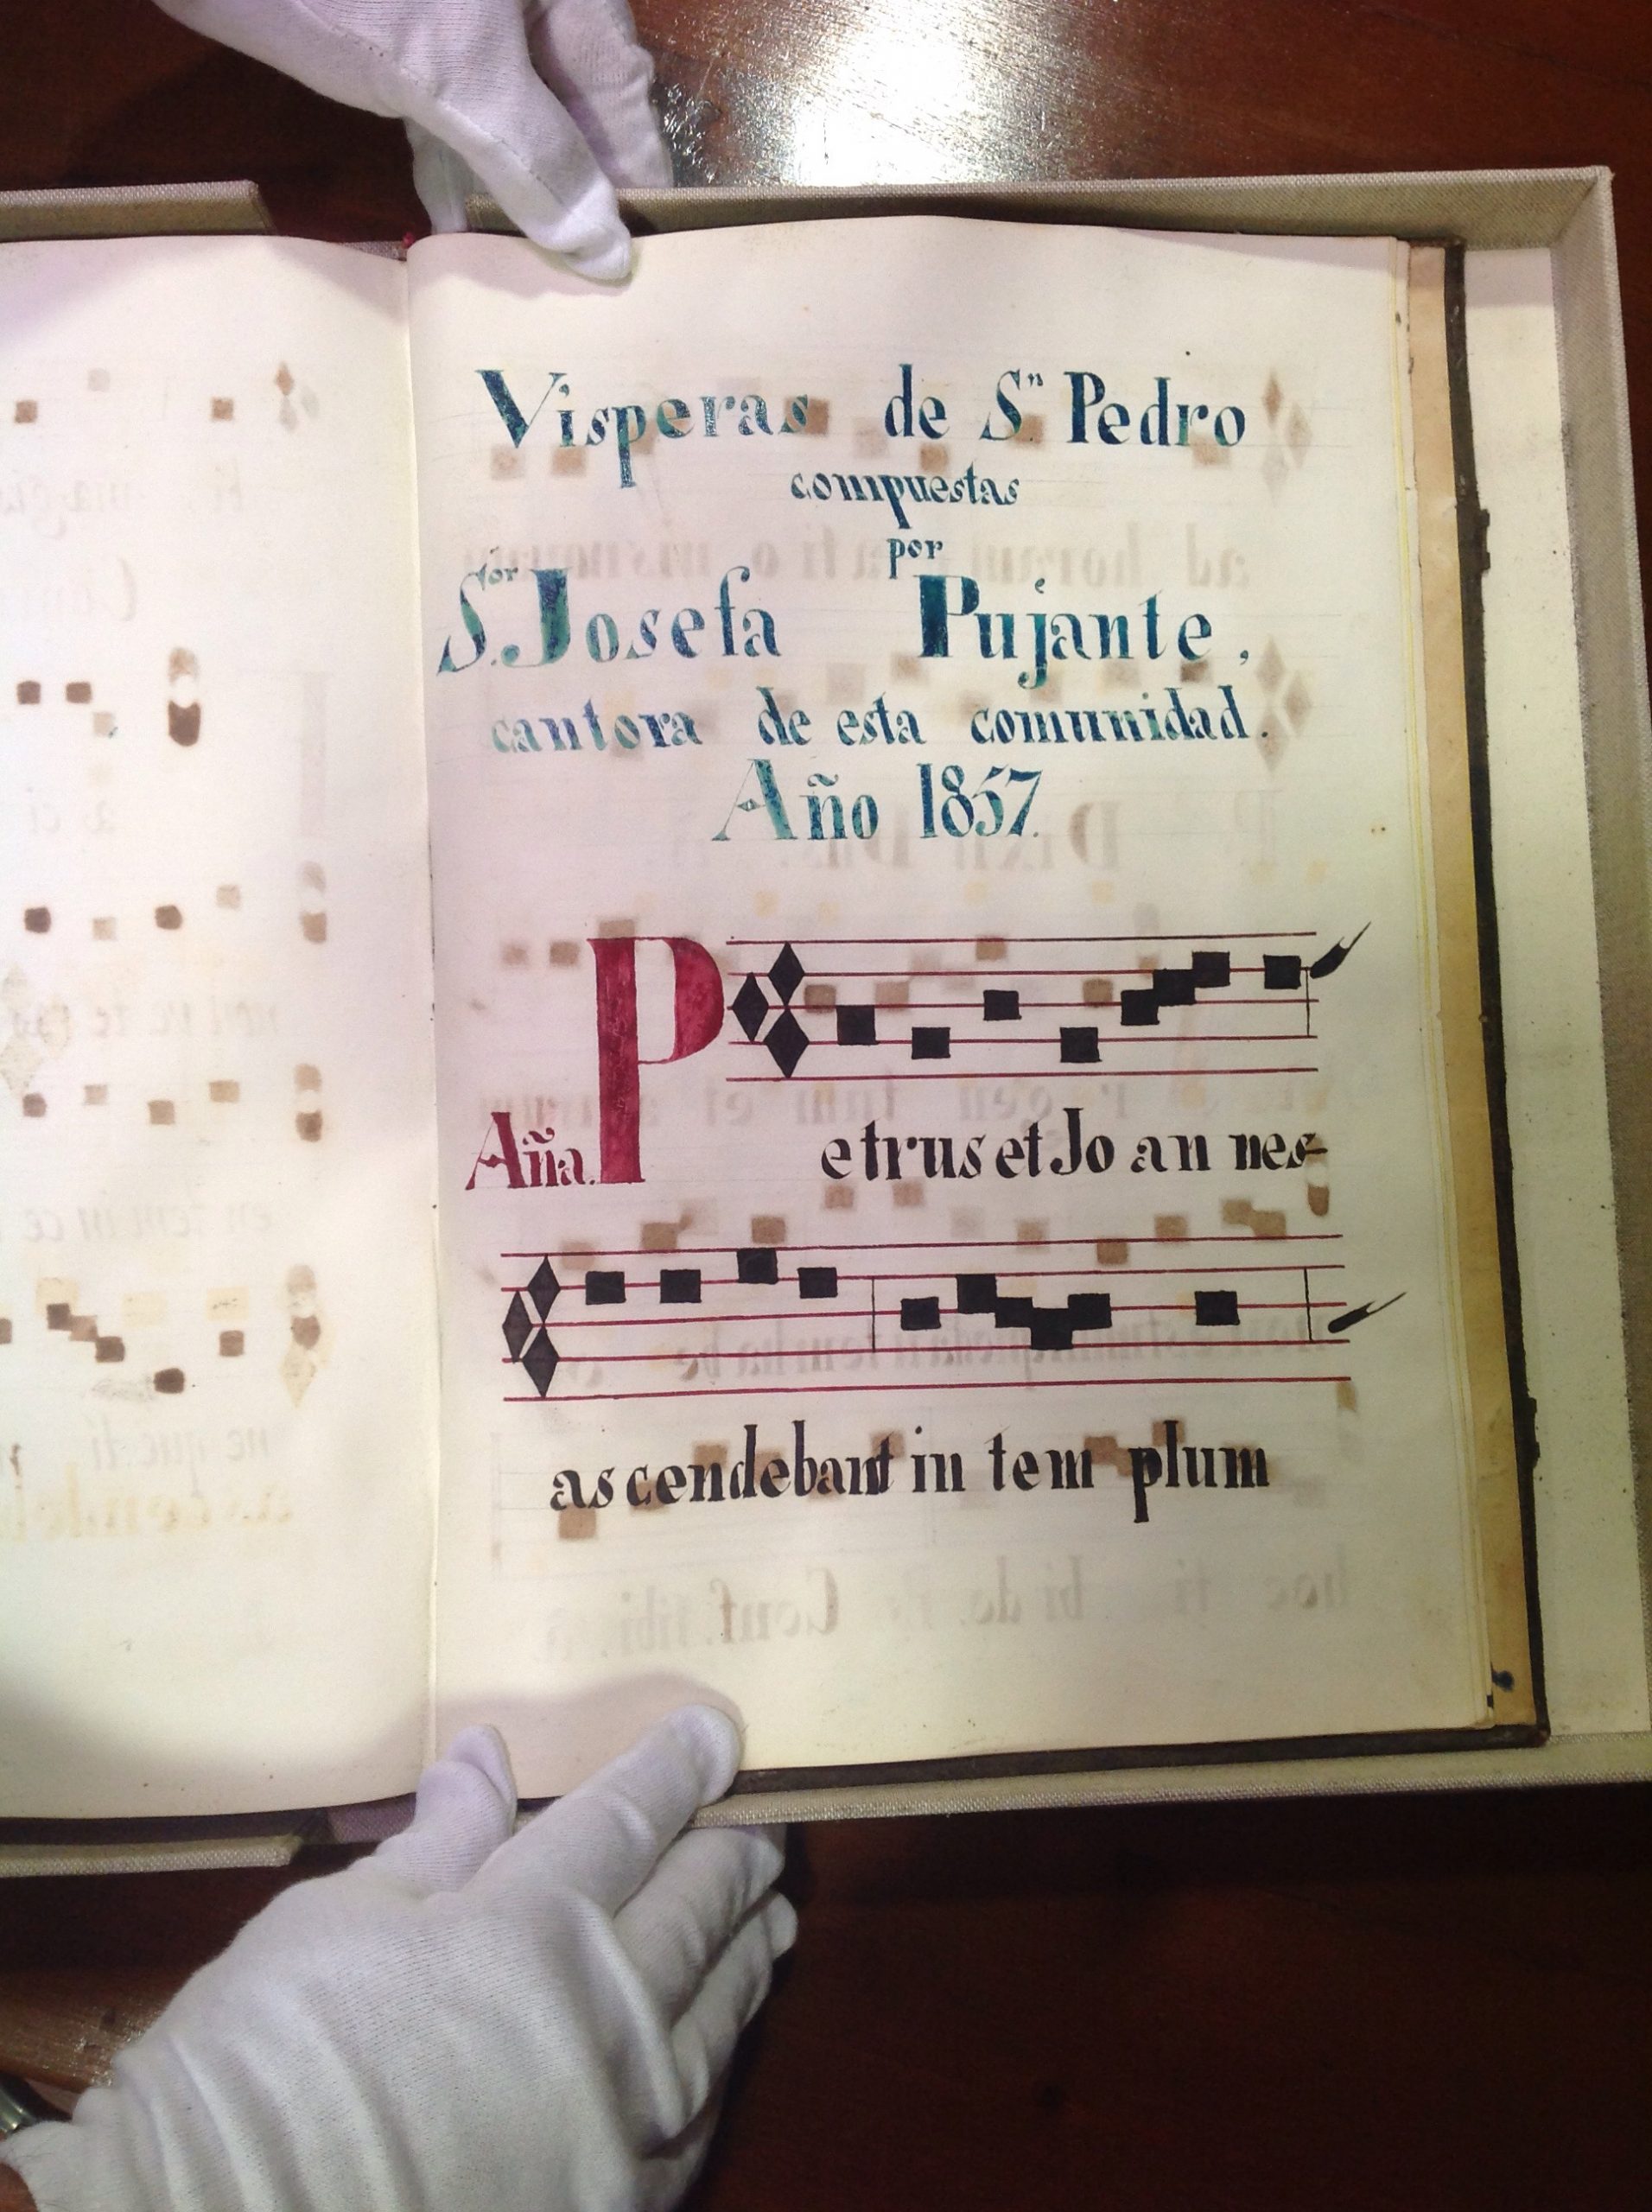 Visperas de Sⁿ Pedro
compuestas
por
S.ᵒʳ Josefa Pujante,
cantora de esta comunidad.
Año 1857.
Aña. Petrus et Jo an nes
as cendebant in tem plum